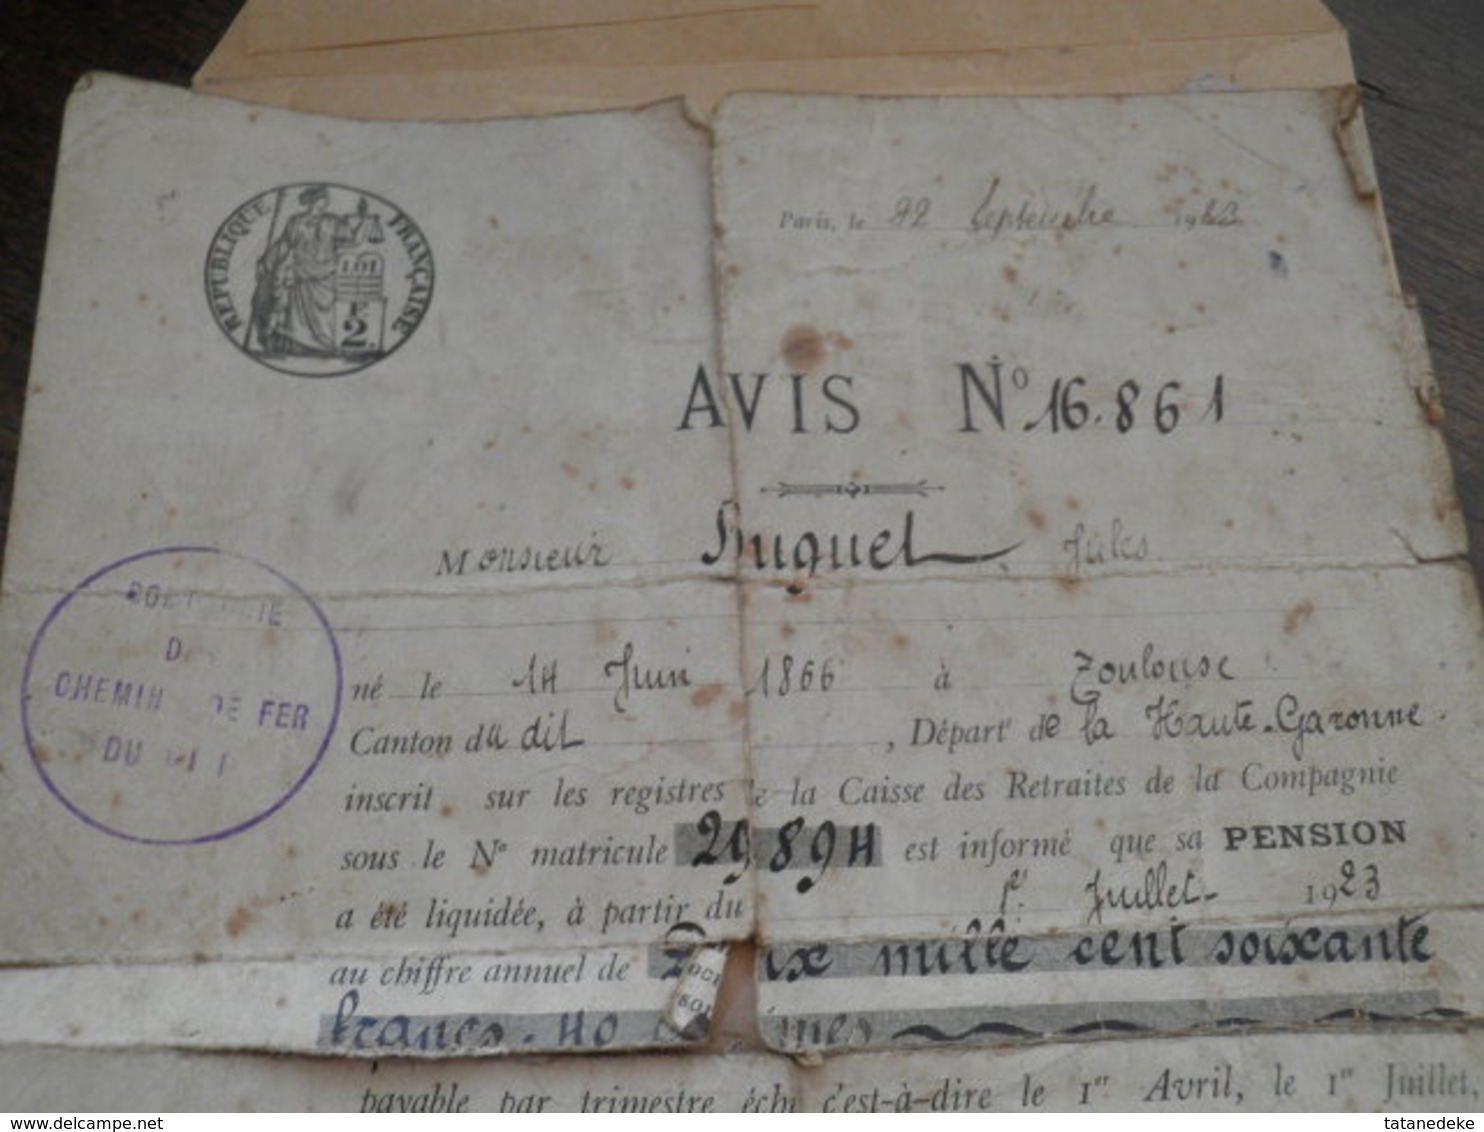 RÉPUBLIQUE FRANÇAISE
LOI
F
2
Paris, le 22 Septembre 19
AVIS No 16.861
Monsieur Huguet, Jules
né le 14 Juin 1866 à Toulouse
Canton du dit, Départt de la Haute-Garonne.
inscrit sur les registres de la Caisse des Retraites de la Compagnie
sous le No matricule 29894 est informé que sa PENSION
a été liquidée, à partir du 1er Juillet 1923
au chiffre annuel de Deux mille cent soixante
francs. 40
payable par trimestre c'est-à-dire le 1er Avril, le 1er Juillet,
CHEMIN DE FER
DU
tatanedeke